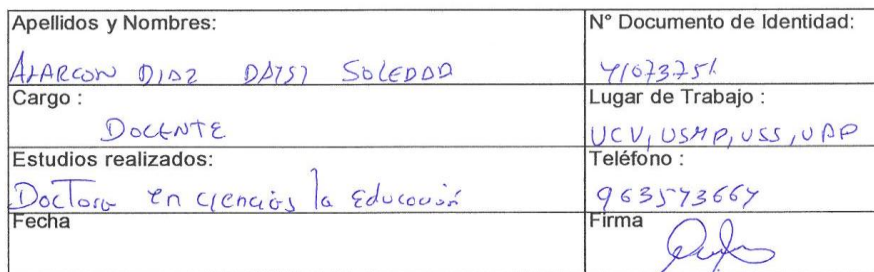 Apellidos y Nombres:
N° Documento de Identidad:
ALARCON DIAZ DAYSI SOLEDAD
41073751
Cargo :
Lugar de Trabajo :
DOCENTE
UCV, USMP, USS, UAP
Estudios realizados:
Teléfono :
Doctora en ciencias la Educación
963573664
Fecha
Firma